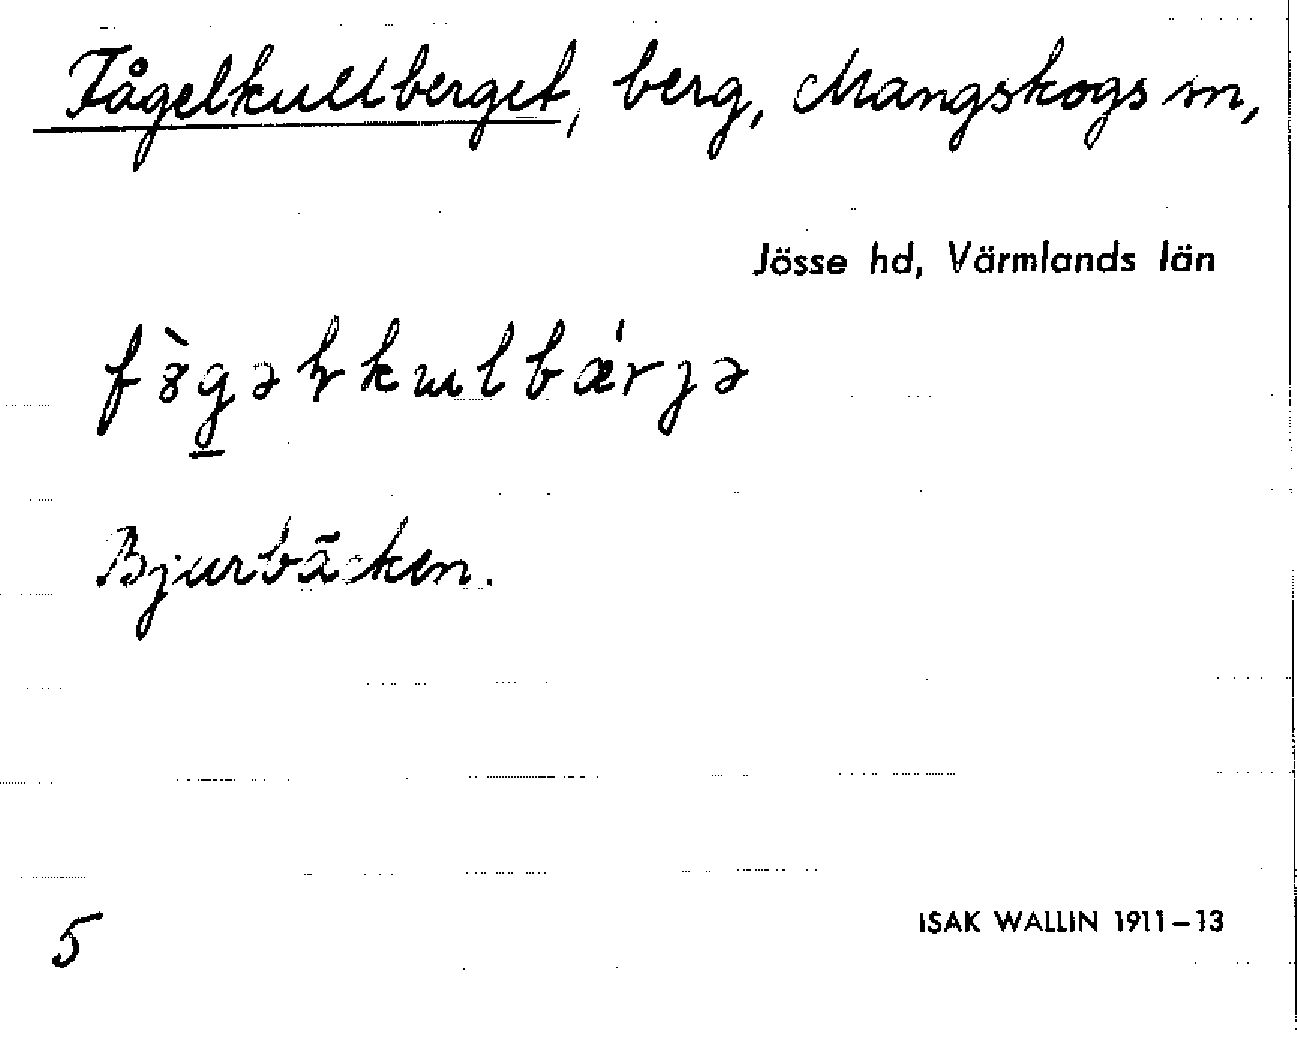 Fågelkullberget, berg, Mangskogs sn,
Jösse hd, Värmlands län
Bjurbäcken.
5
ISAK WALLIN 1911–13